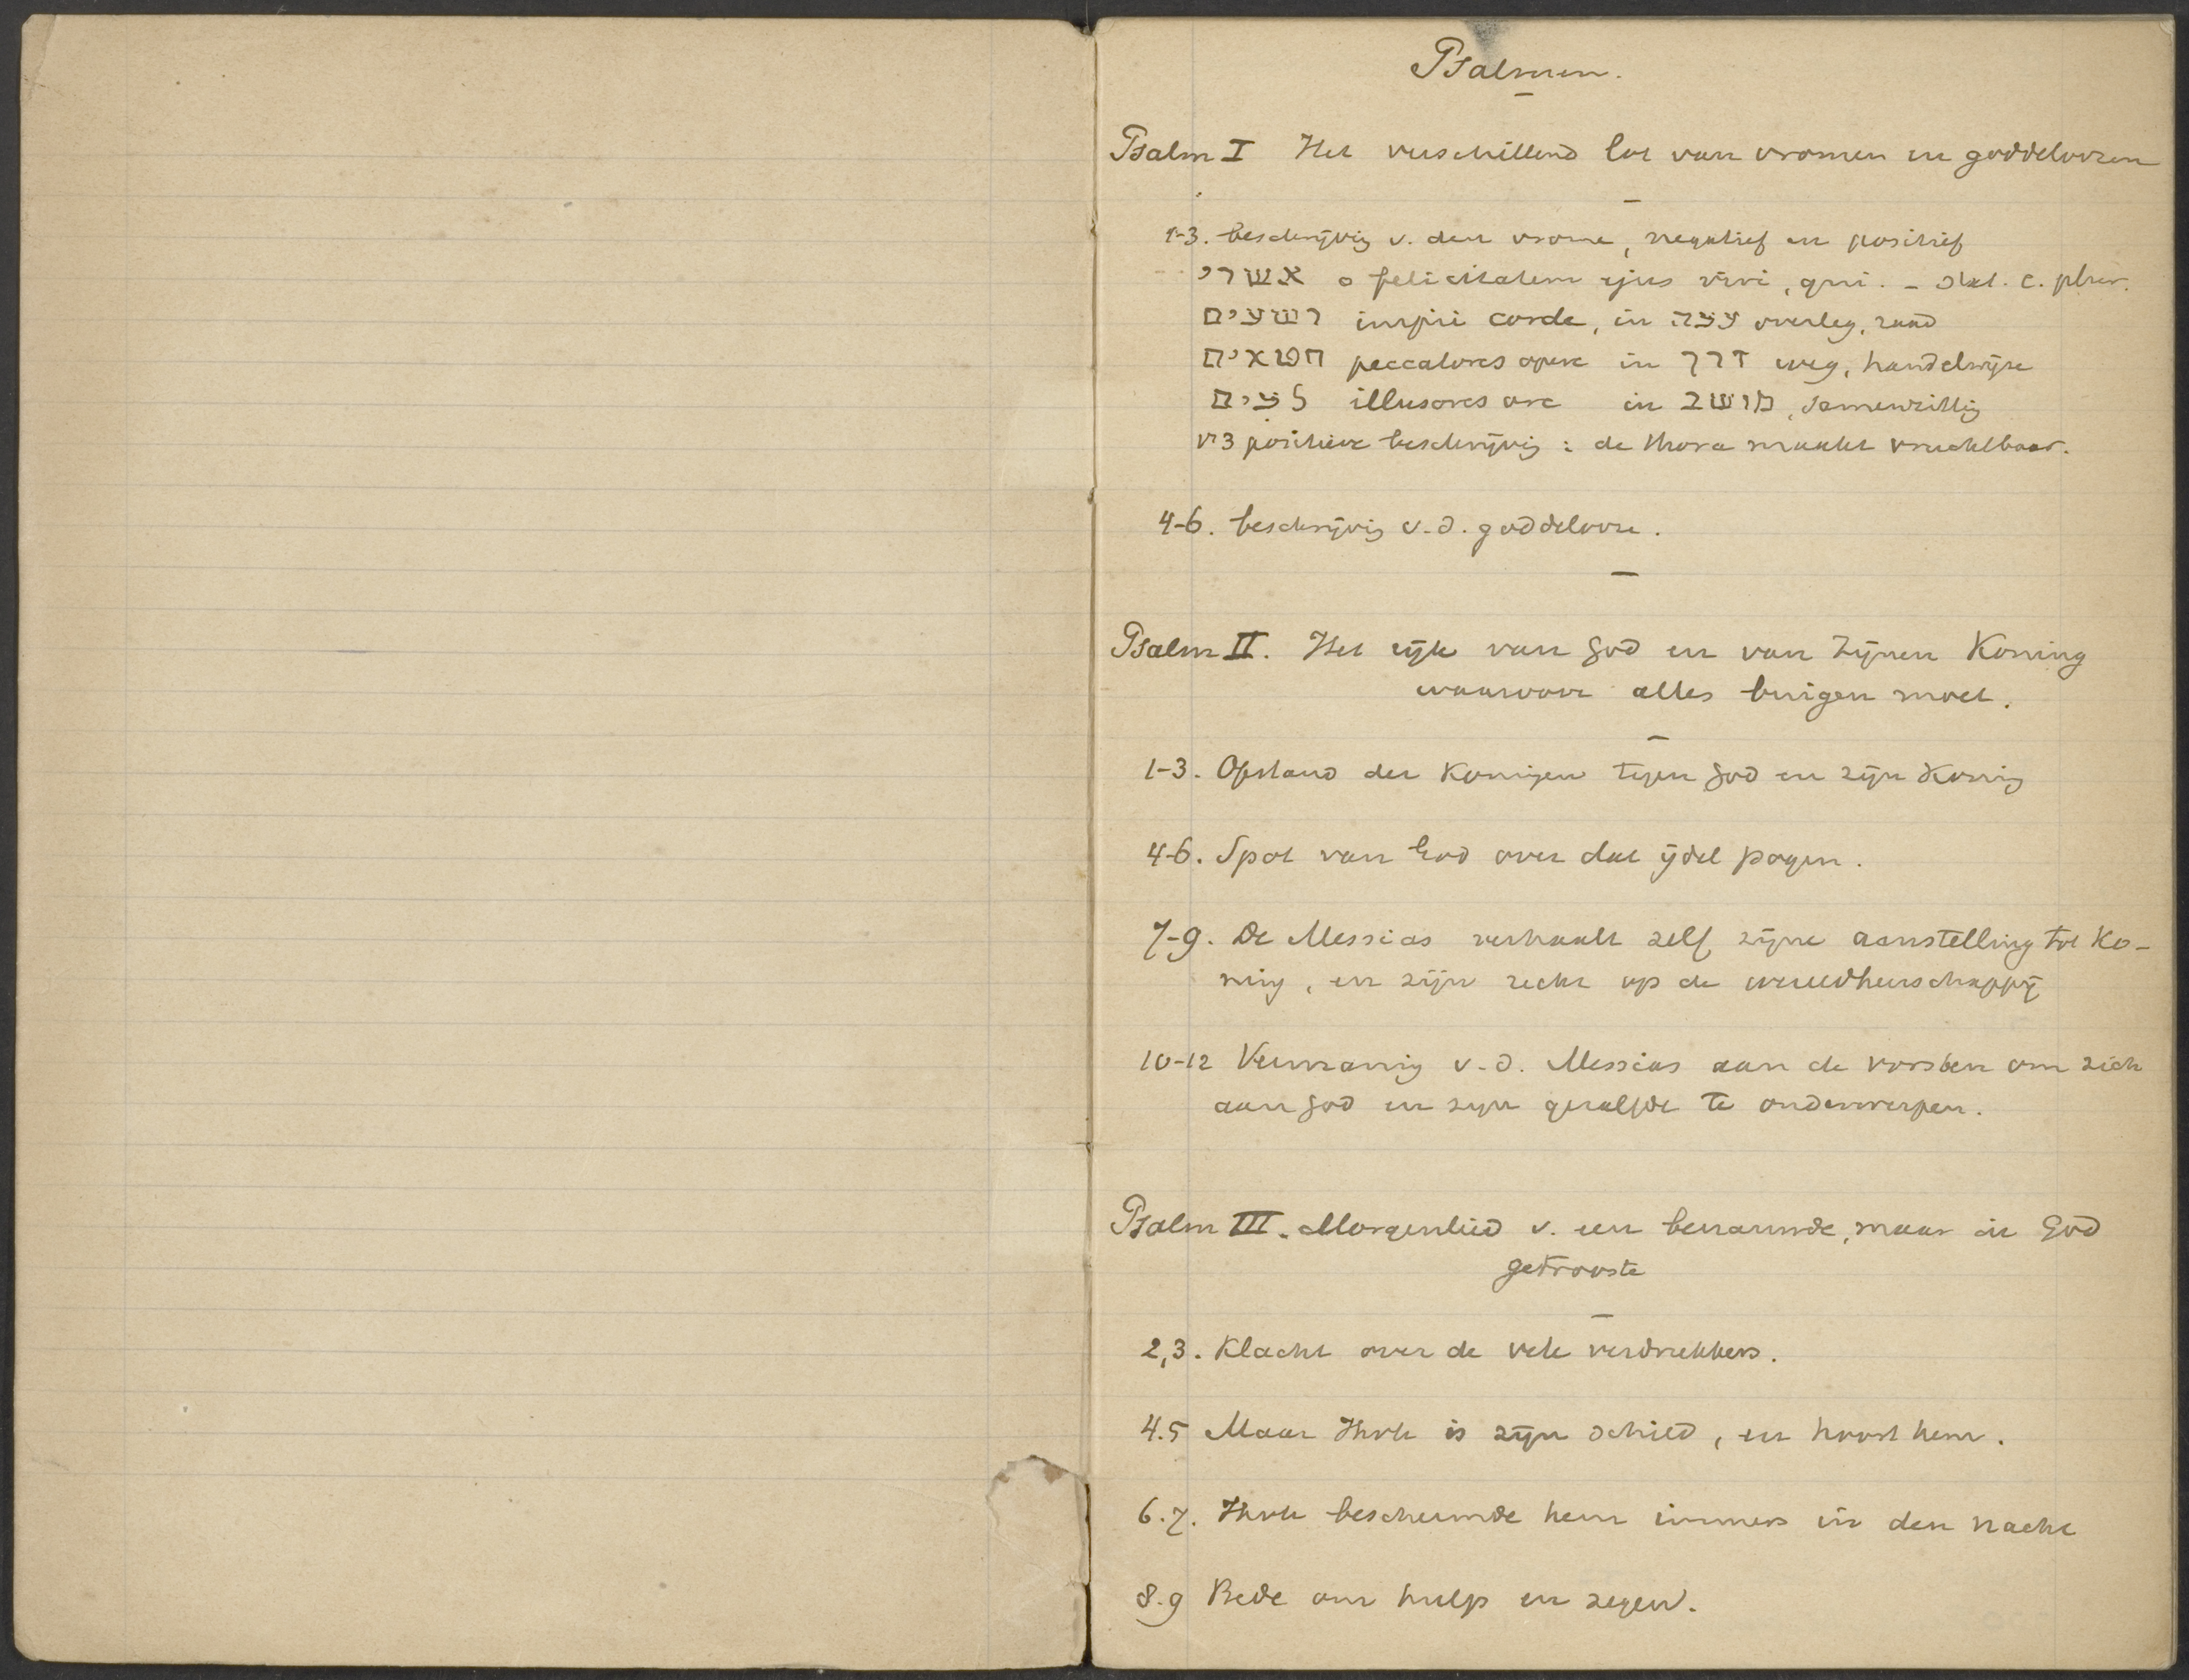 Psalmen.
Psalm I Het verschillend lot van vromen en goddeloozen
1-3. beschrijvig v. den vrome, negatief en positief
אשרי o felicitatem ejus viri, qui. - stat. c. plur.
רשעים impii corde, in עצה overleg, raad
חטאים peccatores opere in דרך weg, handelwijze
לצים illusores ore in מושב, samenzittig
vs 3 positieve beschrijvig: de thora maakt vruchtbaar.
4-6. beschrijvig v. d. goddelooze.
Psalm II. Het rijk van God en van Zijnen Koning
waarvoor alles buigen moet.
1-3. Opstand der Konigen tegen God en zijn Konig
4-6. Spot van God over dat ijdel pogen.
7-9. De Messias verhaalt zelf zijne aanstelling tot Ko-
nig, en zijn recht op de wereldheerschappij
10-12 Vermanig v. d. Messias aan de vorsten om zich
aan God en zijn gezalfde te onderwerpen.
Psalm III. Morgenlied v. een benarde, maar in God
getrooste
2,3. Klacht over de vele verdrukkers.
4.5 Maar Ihvh is zijn schild, en hoort hem.
6.7. Ihvh beschermde hem immers in den nacht
8.9 Bede om hulp en zegen.